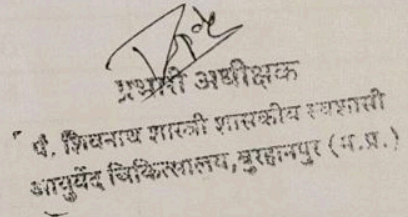 प्रभारी अधीक्षक
पं. शिवनाथ शास्त्री शासकीय स्वशासी
आयुर्वेद चिकित्सालय, बुरहानपुर (म.प्र.)